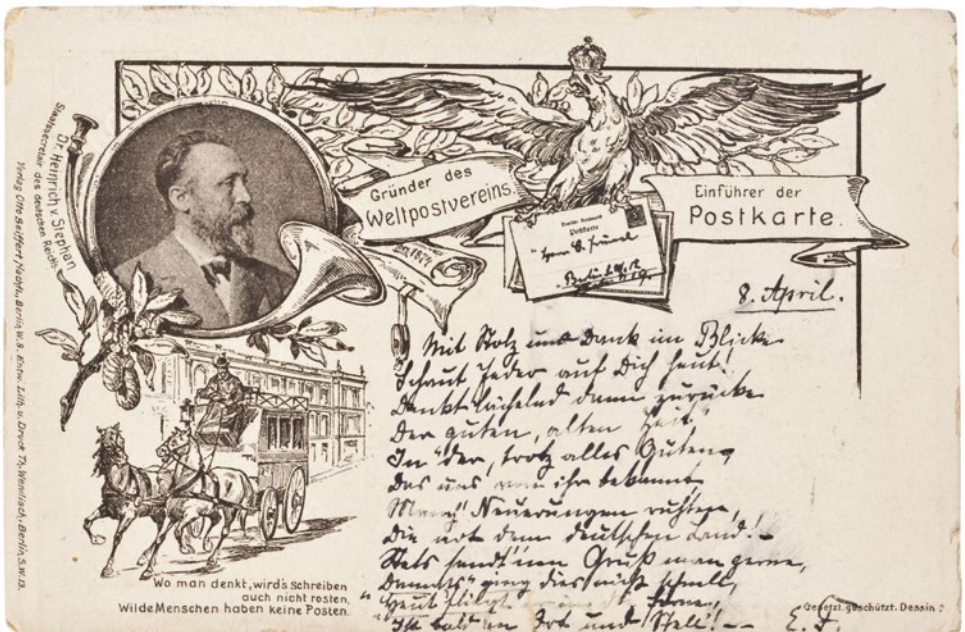 Dr. Heinrich v. Stephan
Staatssecretair des deutschen Reichs.
Verlag Otto Seiffert Nachfl., Berlin W.8. Entw. Lith. u. Druck Th. Wendisch, Berlin S.W.13.
Gründer des
Weltpostvereins.
1874
Einführer der
Postkarte.
Deutsche Reichspost
Postkarte
Herrn
Berlin
8. April.
Mit Stolz und Dank im Blicke
Schaut Jeder auf Dich heut!
Denkt lächelnd dann zurücke
Der guten, alten Zeit!
In der, trotz alles Guten,
Das uns von ihr bekannt,
Manch' Neuerungen ruhten,
Die not dem deutschen Land! –
Stets sandt' nen Gruß man gerne,
"Damals" ging dies nicht schnell,
"Heut" fliegt Ferne,
Ist bald an Ort und Stell! –
E. F.
Wo man denkt, wird's Schreiben
auch nicht rosten,
Wilde Menschen haben keine Posten.
Gesetzl. geschützt. Dessin